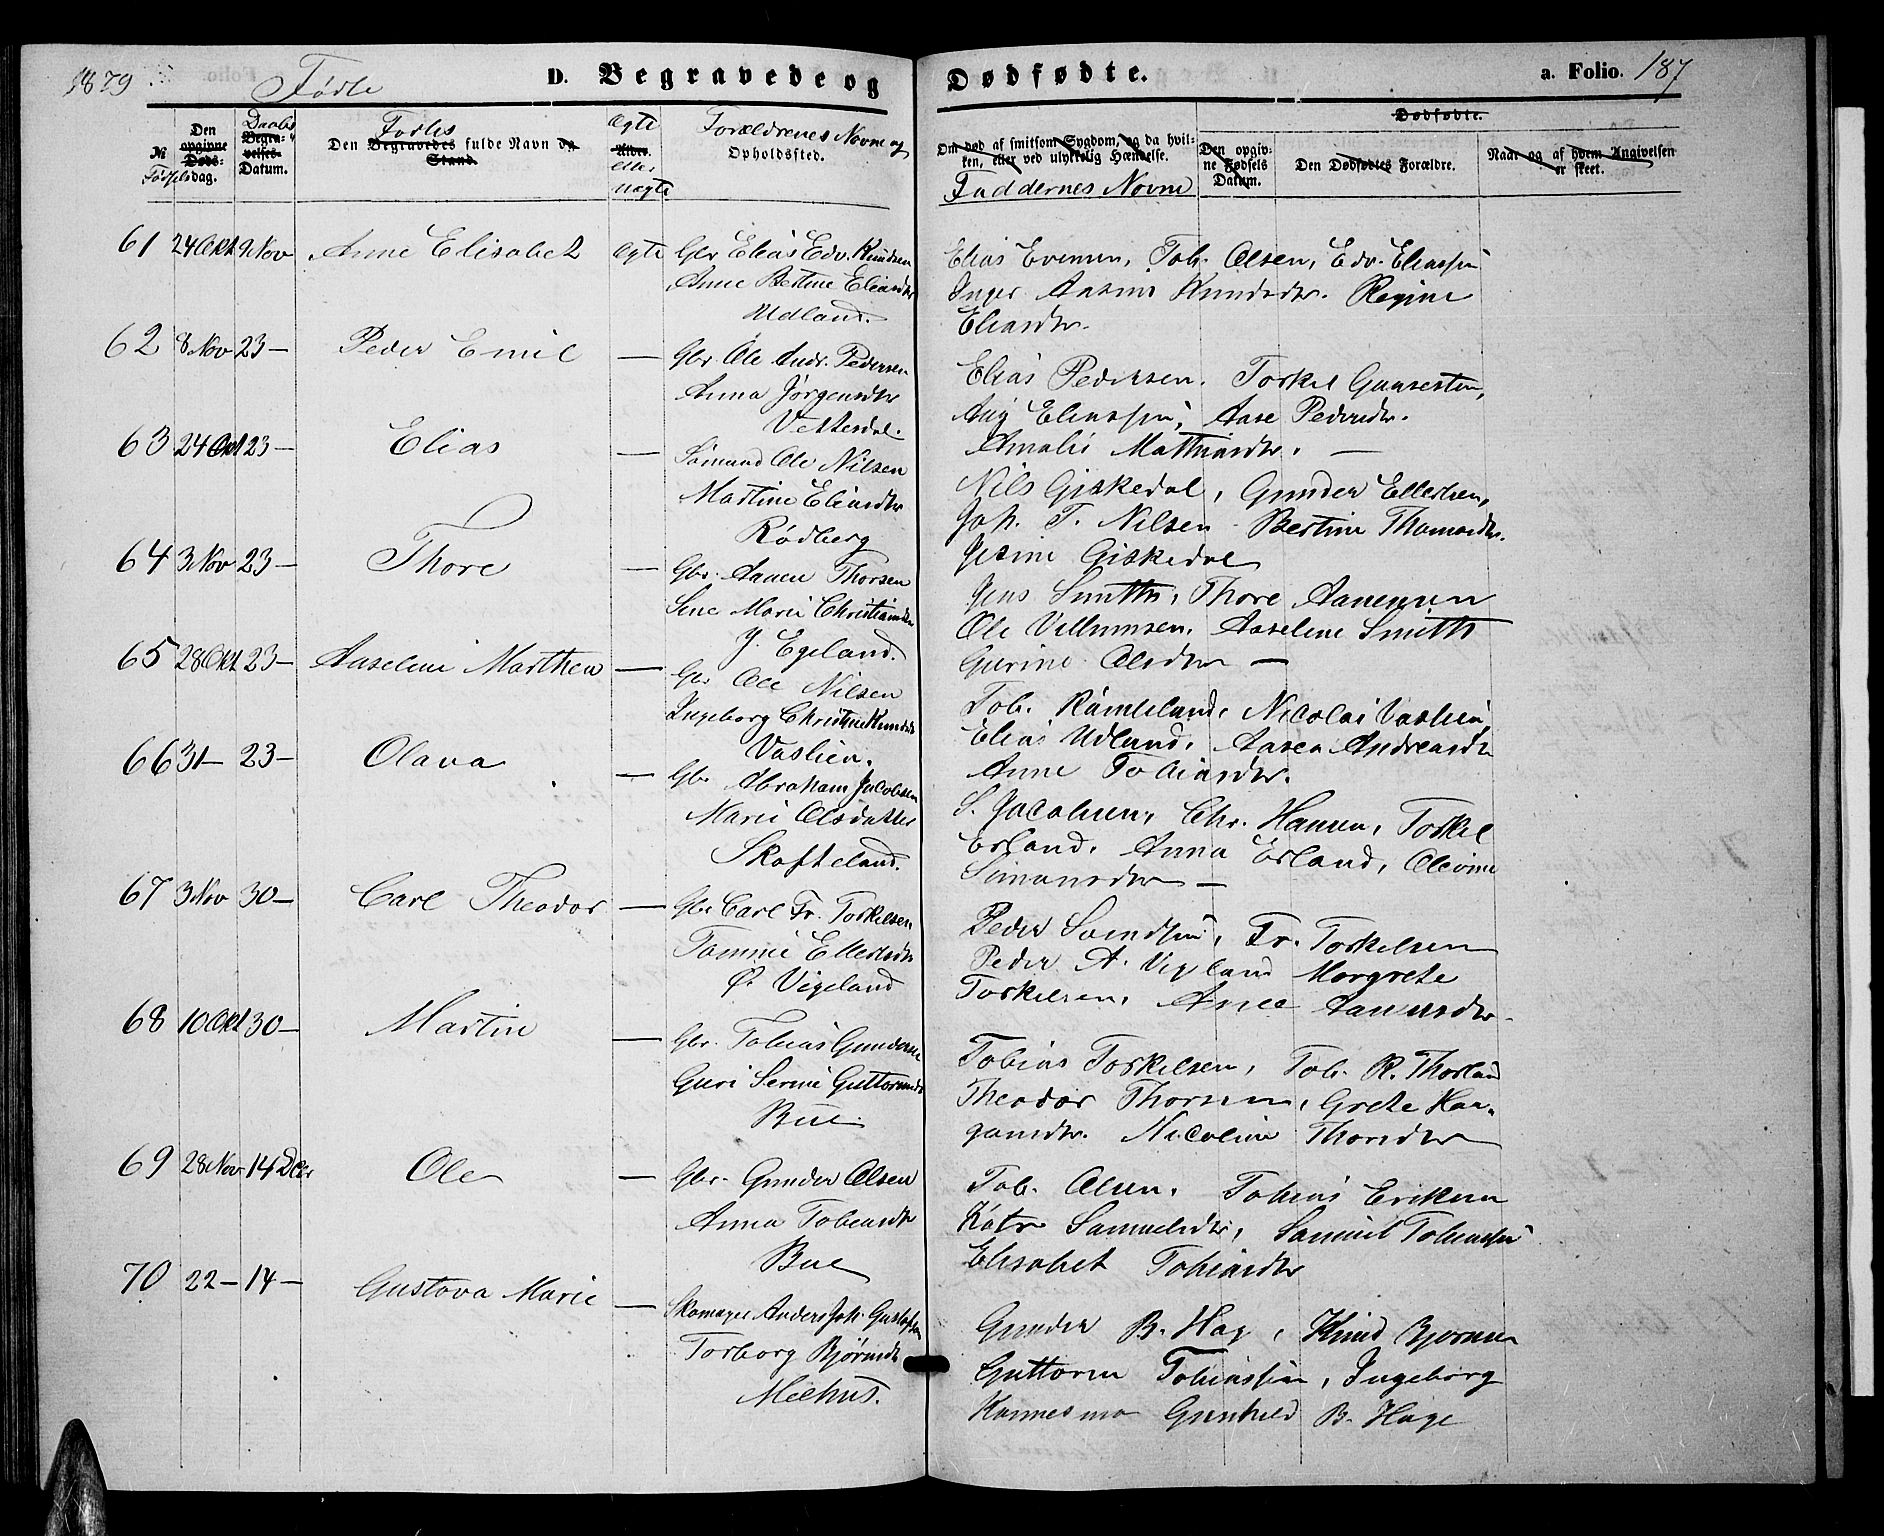 1879 Fødte D. Begravede og Dødfødte. a. Folio. 187
№ Fødselsdag. Den opgivne Døds- Daabs Begravelses- Datum. Den Fødtes Begravedes fulde Navn og Stand. Ægte Alder. eller uægte Forældrenes Navne og Opholdssted.
Om død af smitsom Sygdom, og da hvilken, eller ved ulykkelig Hændelse. Faddernes Navne
Dødfødte.
Den opgivne Fødsels Datum. Den Dødfødtes Forældre. Naar og af hvem Angivelsen er skeet.
61 24 Okt 9 Nov Anne Elisabet ægte Gbr Elias Edv. Knudsen
Anne Bertine Eliasdtr
Udland.
Elias Evensen, Tob. Olsen, Edv. Eliassen
Inger Knudsdtr. Regine
Eliasdtr.
62 8 Nov 23 — Peder Emil — Gbr Ole Andr. Pedersen
Anna Jørgensdtr
Vettesdal.
Elias Pedersen. Torkel
Eliassen, Aase Pedersdtr.
Amalie Mathiasdtr. —
63 24 Okt 23 — Elias — Sømand Ole Nilsen
Martine Eliasdtr
Rødberg
Nils Giskedal, Gunder Ellefsen,
Joh. T. Nilsen Bertine Thomasdtr.
Jesine Giskedal
64 3 Nov 23 — Thore — Gbr. Aanen Thorsen
Sine Marie Christiansdtr
Y. Egeland.
Jens Smith, Thore Aanensen
Ole Villumsen. Aaselene Smith
Gurine Olsdtr —
65 28 Okt 23 — Aaselene Marthea — Gbr Ole Nilsen
Ingeborg Christine Knudsdtr
Vaslien.
Tob. Rameland, Nicolai Vaslien,
Elias Udland, Aasea Andreasdtr
Anne Tobiasdtr.
66 31 — 23 — Olava — Gbr Abraham Jacobsen
Marie Olsdatter
Skofteland.
S. Jacobsen, Chr. Hansen, Torkel
Erland. Anna Erland, Olevine
Simonsdtr —
67 3 Nov 30 — Carl Theodor — Gbr Carl Fr. Torkelsen
Tomine Ellefsdtr
Ø. Vigeland
Peder Svendsen, Fr. Torkelsen
Peder A. Vigeland Margrete
Torkelsen, Anne Aanensdtr.
68 10 Okt 30 — Martin — Gbr. Tobias Gundersen
Guri Serine Guttormsd
Bue.
Tobias Torkelsen, Tob. R. Thorland
Theodor Thorsen, Grete Haa-
gansdtr. Nicoline Thorsdtr
69 28 Nov 14 Dcbr Ole — Gbr. Gunder Olsen
Anna Tobiasdtr
Bue
Tob. Olsen, Tobias Eriksen
Katr Samuelsdtr, Samuel Tobiassen
Elisabet Tobiasdtr
70 22 — 14 — Gustava Marie — Skomager Anders Joh. Gustafsen
Torborg Bjørnsdtr
Meehus.
Gunder B. Hage, Knud Bjørnsen
Guttorm Tobiassen, Ingeborg
Gunhild B. Hage